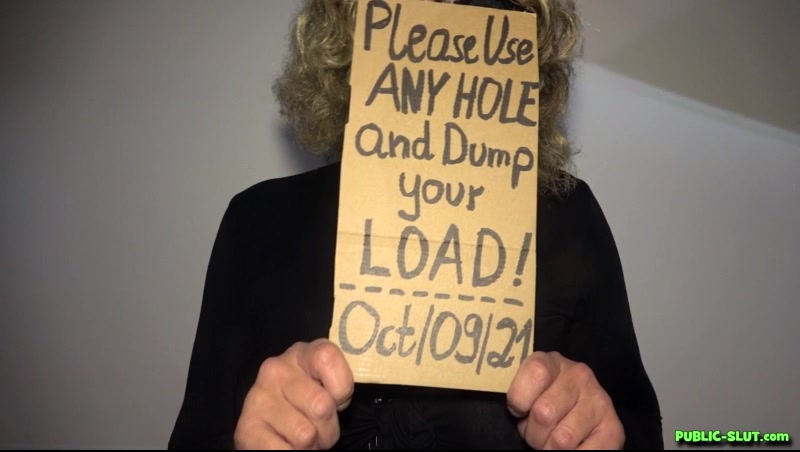 Please Use
ANY HOLE
and Dump
your
LOAD!
Oct/09/21
PUBLIC-SLUT.com